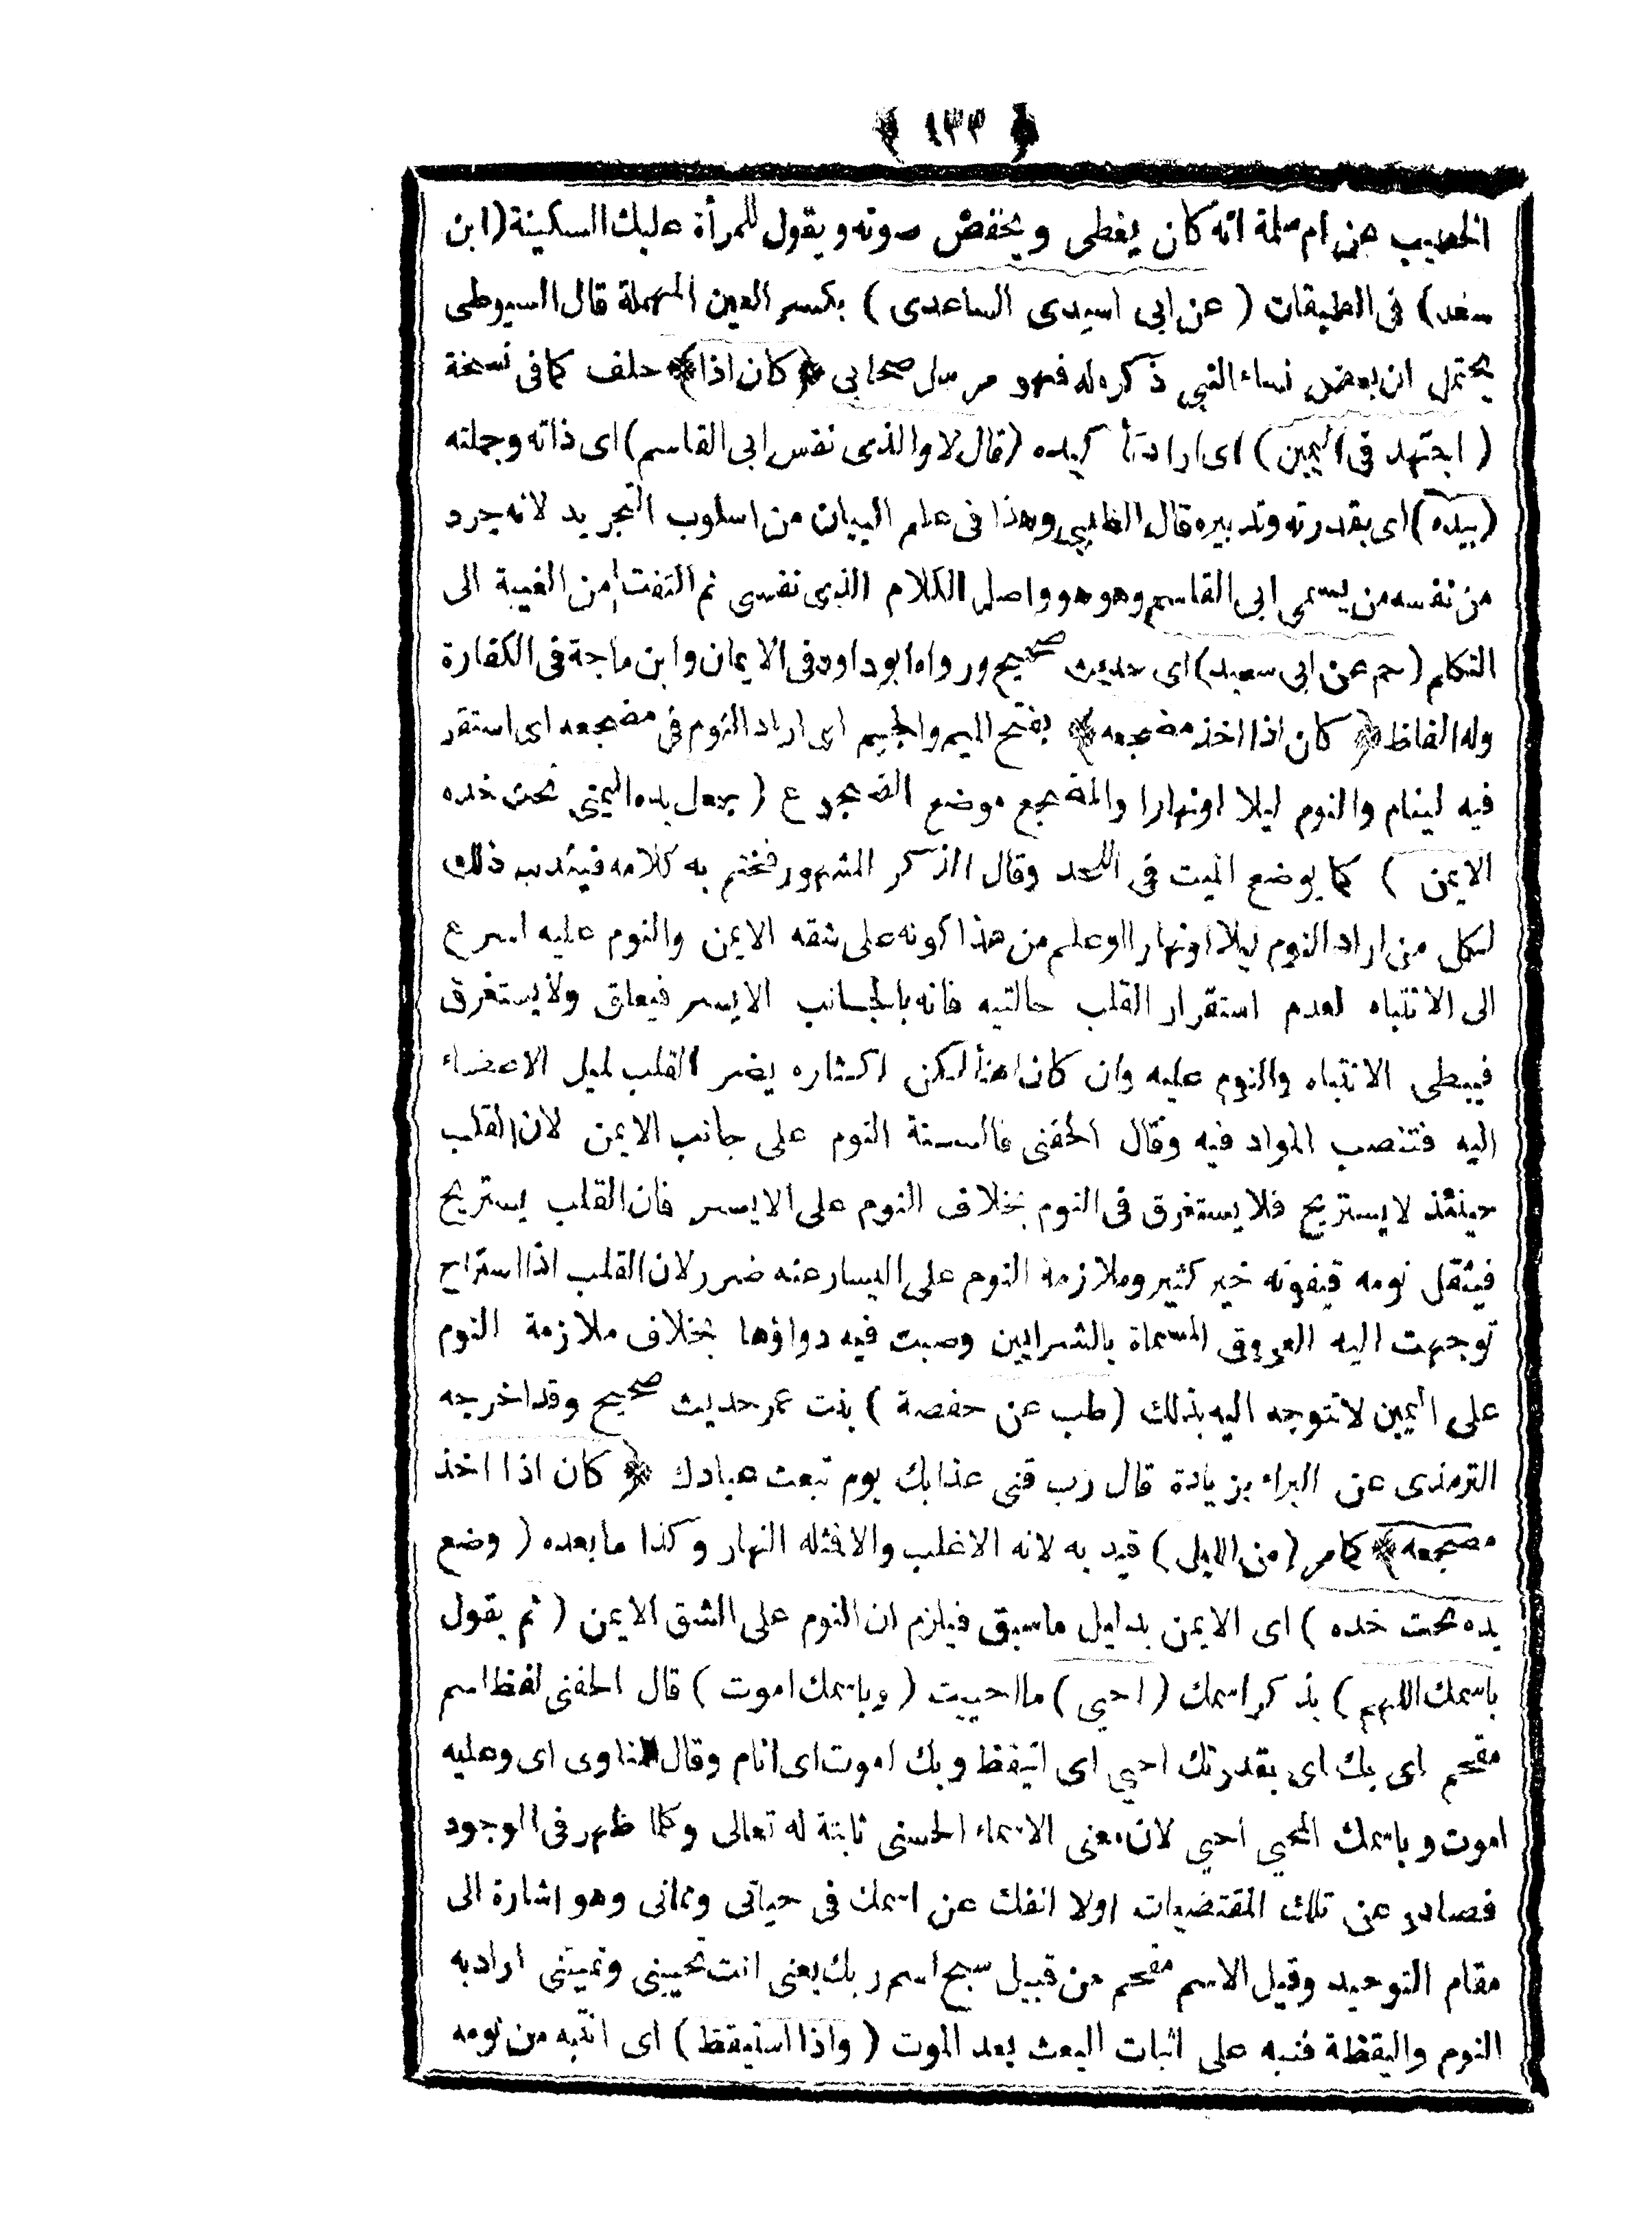 ﴿ ١٣٣ ﴾
الخصيب عن ام سلمة انه كان يغطى ويخفض صوته ويقول للمرأة عليك السكينة (ابن
سعد) فى الطبقات (عن ابى اسيدى الساعدى) بكسر العين المهملة قال السيوطى
يحتمل ان بعض نساء النبي ذكره له فهو مرسل صحابى ﴿كان اذا﴾ حلف كما فى نسخة
(اجتهد فى اليمين) اى اراد تأكيده (قال لا والذى نفس ابى القاسم) اى ذاته وجملته
(بيده) اى بقدرته وتدبيره قال الطيبي وهذا فى علم البيان من اسلوب التجريد لانه جرد
من نفسه من يسمى ابى القاسم وهو هو واصل الكلام الذى نفسى ثم التفت من الغيبة الى
التكلم (حم عن ابى سعيد) اى حديث صحيح ورواه ابو داود فى الايمان وابن ماجة فى الكفارة
وله الفاظ ﴿كان اذا اخذ مضجعه﴾ بفتح الميم والجيم اى اراد النوم فى مضجعه اى استقر
فيه لينام والنوم ليلا اونهارا والمضجع موضع الضجوع (جعل يده اليمنى تحت خده
الايمن) كما يوضع الميت فى اللحد وقال الذكر المشهور فختم به كلامه فيندب ذلك
لكل من اراد النوم ليلا اونهارا وعلم من هذا كونه على شقه الايمن والنوم عليه اسرع
الى الانتباه لعدم استقرار القلب حالتيه فانه بالجانب الايسر فيعلق ولا يستغرق
فيبطى الانتباه والنوم عليه وان كان اهنأ لكن اكثاره يضر القلب لميل الاعضاء
اليه فتنصب المواد فيه وقال الحفنى فالسنة النوم على جانب الايمن لان القلب
حينئذ لا يستريح فلا يستغرق فى النوم بخلاف النوم على الايسر فان القلب يستريح
فيثقل نومه فيفوته خير كثير وملازمة النوم على اليسار عنه ضرر لان القلب اذا استراح
توجهت اليه العروق المسماة بالشرايين وصبت فيه دواؤها بخلاف ملازمة النوم
على اليمين لا تتوجه اليه بذلك (طب عن حفصة) بنت عمر حديث صحيح وقد اخرجه
الترمذى عن البراء بزيادة قال رب قنى عذابك يوم تبعث عبادك ﴿كان اذا اخذ
مضجعه﴾ كما مر (من الليل) قيد به لانه الاغلب والا فمثله النهار وكذا ما بعده (وضع
يده تحت خده) اى الايمن بدليل ما سبق فيلزم ان النوم على الشق الايمن (ثم يقول
باسمك اللهم) بذكر اسمك (احيى) ما احييت (وباسمك اموت) قال الحفنى لفظ اسم
مقحم اى بك اى بقدرتك احيى اى اتيقظ وبك اموت اى انام وقال المناوى اى وعليه
اموت وباسمك المحيي احيي لان معنى الاسماء الحسنى ثابتة له تعالى وكلما ظهر فى الوجود
فصادر عن تلك المقتضيات اولا انفك عن اسمك فى حياتى ومماتى وهو اشارة الى
مقام التوحيد وقيل الاسم مقحم من قبيل سبح اسم ربك يعنى انت تحيينى وتميتنى اراد به
النوم واليقظة فنبه على اثبات البعث بعد الموت (واذا استيقظ) اى انتبه من نومه